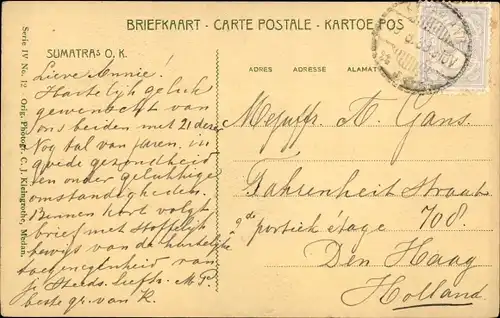 BRIEFKAART - CARTE POSTALE - KARTOE POS
SUMATRAS O. K.
ADRES ADRESSE ALAMAT
Serie IV No. 12 Orig. Photogr. C. J. Kleingrothe, Medan.
Lieve Annie!
Hartelijk geluk
gewenscht van
ons beiden met 21 dezer
Nog tal van jaren, in
goede gezondheid
en onder gelukkige
omstandigheden.
Binnen kort volgt
brief met stoffelijk
bewijs van de hartelijke
toegenegenheid van
je steeds liefh. M. P.
beste gr. van K.
Mejuffr. A. Gans.
Fahrenheit Straat
708.
2de portiek étage
Den Haag
Holland